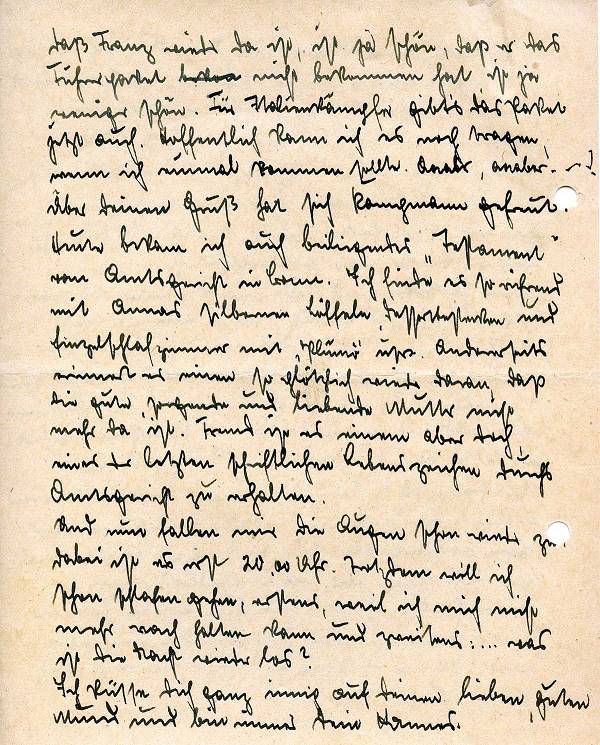 daß Franz wieder da ist, ist ja schön, daß er das
Führerpaket nicht bekommen hat ist ja
weniger schön. Für Italienkämpfer gibts das Paket
jetzt auch. Hoffentlich kann ich es noch tragen,
wenn ich einmal kommen sollte. aber, aber. –!
Über deinen Gruß hat sich gefreut.
Heute bekam ich auch beiliegendes „Testament“
vom Amtsgericht in Ich finde es so rührend
mit Annas silbernen Löffeln, Dessertbestecken und
Einzelschlafzimmer mit „Plümo“ usw. Andererseits
erinnert es einen so plötzlich wieder daran, daß
die gute, sorgende und liebende Mutter nicht
mehr da ist. Fremd ist es einem aber doch,
eines der letzten schriftlichen Lebenszeichen durchs
Amtsgericht zu erhalten.
Und nun fallen mir die Augen schon wieder zu,
dabei ist es erst 20.00 Uhr. Trotzdem will ich
schon schlafen gehen, erstens, weil ich mich nicht
mehr wach halten kann und zweitens: .... was
ist die Nacht wieder los?
Ich küsse Dich ganz innig auf deinen lieben, guten
Mund und bin immer Dein Hannes.